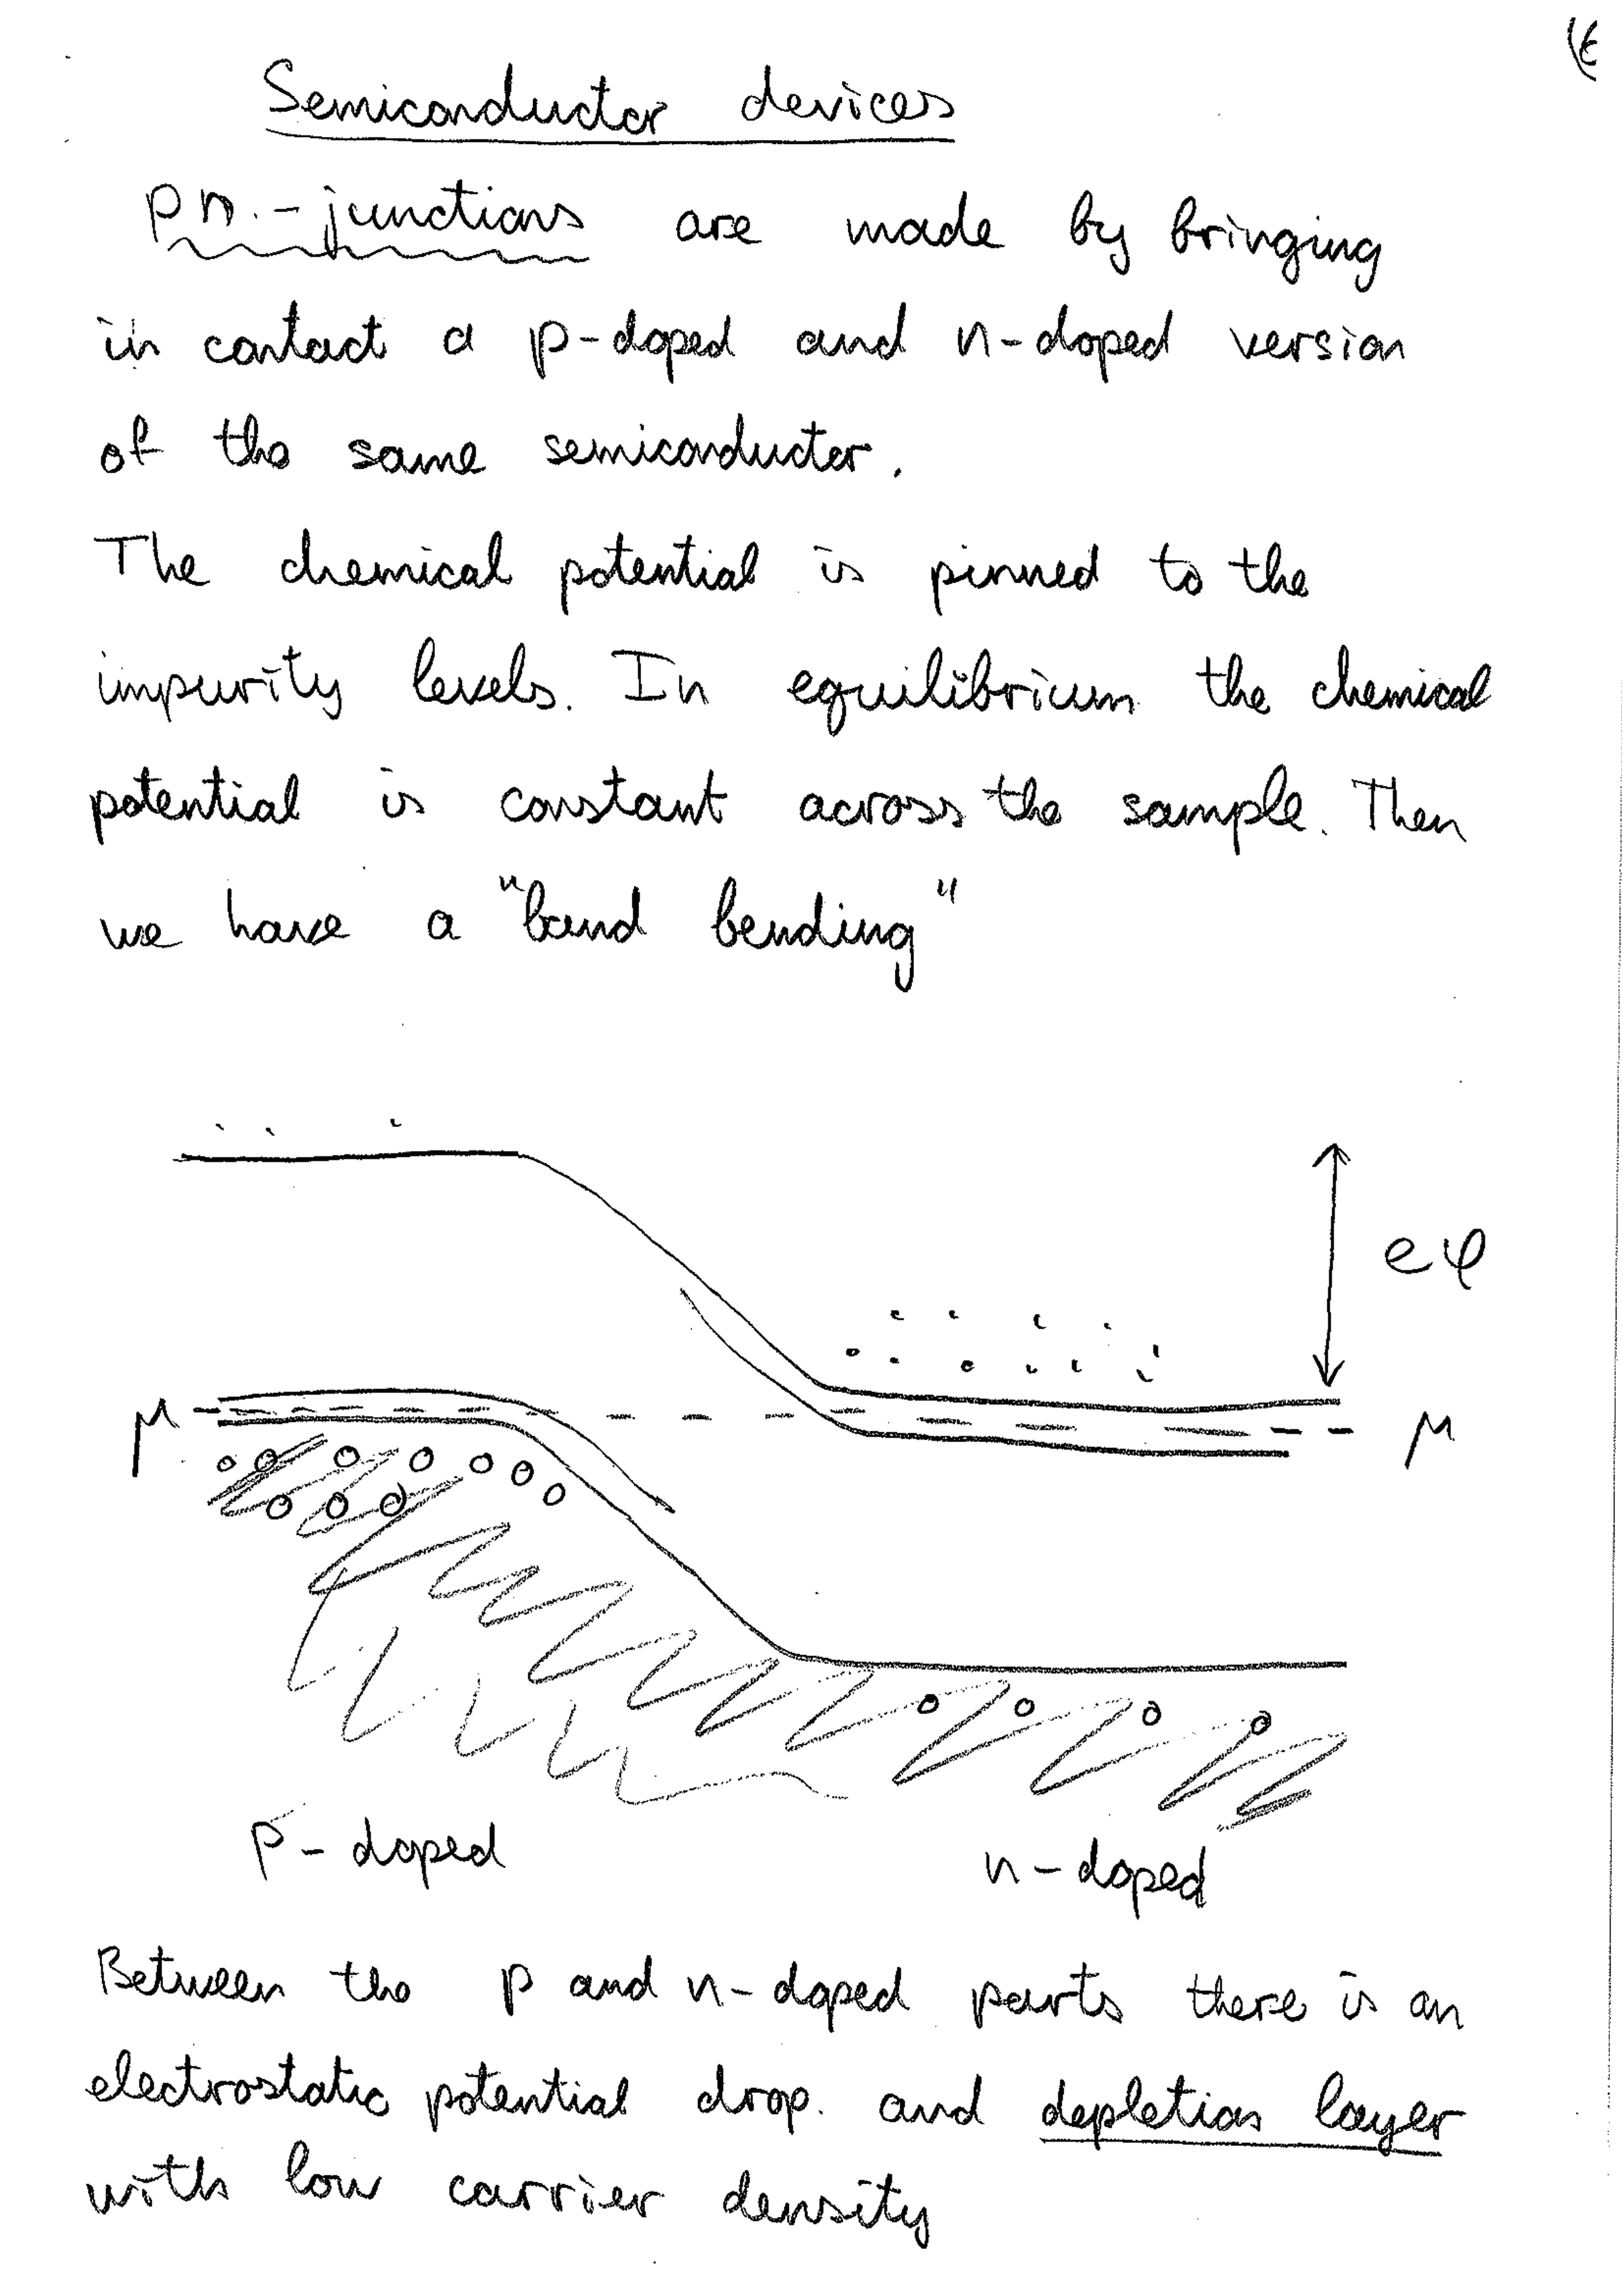 Semiconductor devices
pn.-junctions are made by bringing
in contact a p-doped and n-doped version
of the same semiconductor.
The chemical potential is pinned to the
impurity levels. In equilibrium the chemical
potential is constant across the sample. Then
we have a "band bending"
eφ
μ μ
p-doped
n-doped
Between the p and n-doped parts there is an
electrostatic potential drop. and depletion layer
with low carrier density